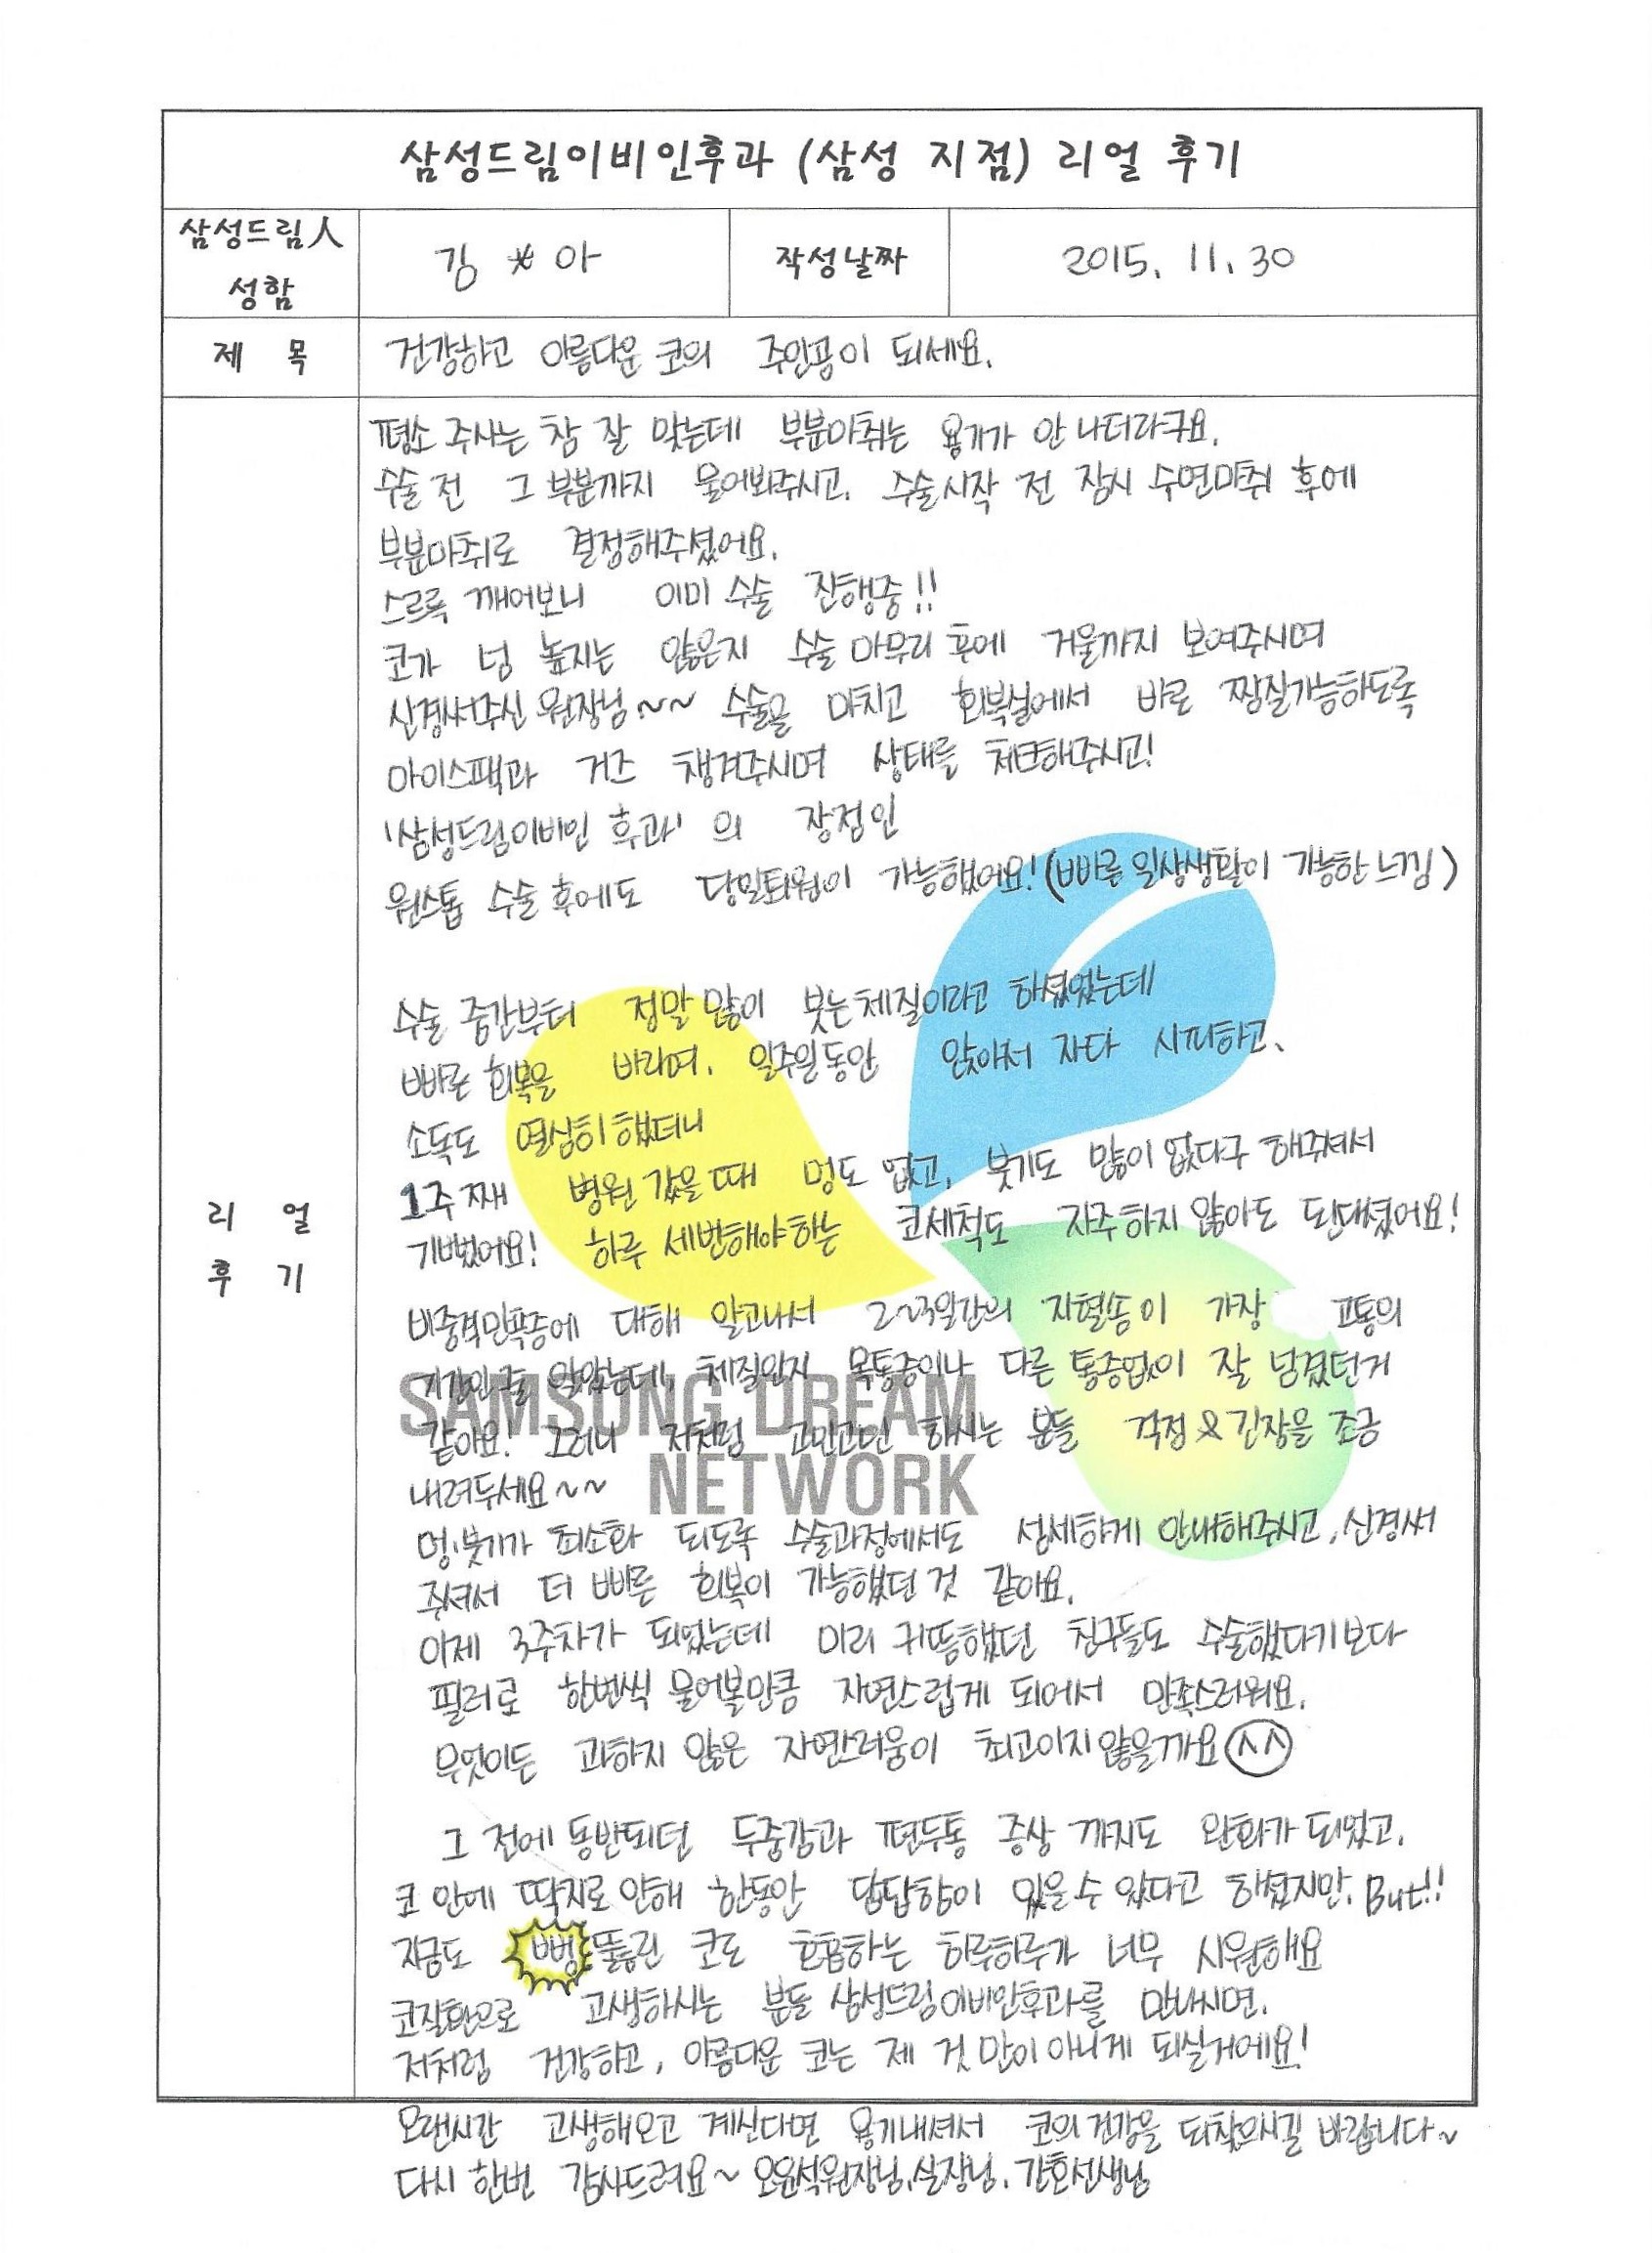 삼성드림이비인후과 (삼성 지점) 리얼 후기
삼성드림人 성함
김 * 아
작성날짜
2015. 11. 30
제 목
건강하고 아름다운 코의 주인공이 되세요.
리 얼 후 기
평소 주사는 참 잘 맞는데 부분마취는 용기가 안 나더라구요.
수술 전 그 부분까지 물어봐주시고, 수술시작 전 잠시 수면마취 후에
부분마취로 결정해주셨어요.
스르륵 깨어보니 이미 수술 진행중!!
코가 넘 높지는 않은지 수술 마무리 후에 거울까지 보여주시며
신경써주신 원장님~~ 수술을 마치고 회복실에서 바로 찜질가능하도록
아이스팩과 거즈 챙겨주시며 상태를 체크해주시고!
'삼성드림이비인 후과' 의 장점인
원스톱 수술 후에도 당일퇴원이 가능했어요! (빠른 일상생활이 가능한 느낌)
수술 중간부터 정말 많이 붓는 체질이라고 하셨었는데
빠른 회복을 바라며, 일주일동안 앉아서 자다 시피하고,
소독도 열심히 했더니
1주째 병원 갔을 때 멍도 없고, 붓기도 많이 없다구 해주셔서
기뻤어요! 하루 세번해야하는 코세척도 자주하지 않아도 된대셨어요!
비중격만곡증에 대해 알고나서 2~3일간의 지혈솜이 가장 고통의
기간인줄 알았는데, 체질인지 목통증이나 다른 통증없이 잘 넘겼던거
같아요! 그러니 저처럼 고민고민 하시는 분들 걱정 & 긴장을 조금
내려두세요~~
SAMSUNG DREAM
NETWORK
멍·붓기가 최소화 되도록 수술과정에서도 섬세하게 안내해주시고, 신경써
주셔서 더 빠른 회복이 가능했던 것 같아요.
이제 3주차가 되었는데 미리 귀띔했던 친구들도 수술했다기보다
필러로 한번씩 물어볼만큼 자연스럽게 되어서 만족스러워요.
무엇이든 과하지 않은 자연스러움이 최고이지않을까요 ^^
그 전에 동반되던 두중감과 편두통 증상 까지도 완화가 되었고,
코 안에 딱지로 인해 한동안 답답함이 있을수 있다고 하셨지만, But!!
지금도 뻥 뚫린 코로 호흡하는 하루하루가 너무 시원해요
코질환으로 고생하시는 분들 삼성드림이비인후과를 만나시면,
저처럼 건강하고, 아름다운 코는 제 것 만이 아니게 되실거에요!
오랜시간 고생해오고 계신다면 용기내셔서 코의 건강을 되찾으시길 바랍니다~
다시 한번 감사드려요~ 오윤석원장님, 실장님, 간호선생님